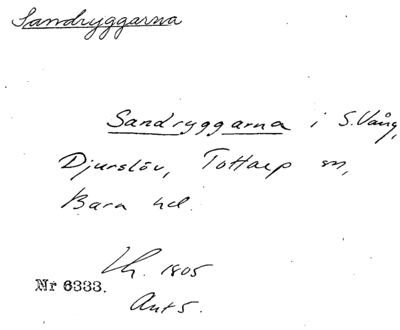 Sandryggarna
Sandryggarna i S. Vång,
Djurslöv, Tottarp sn,
Bara hd.
Lh. 1805
Nr 6333.
Akt 5.